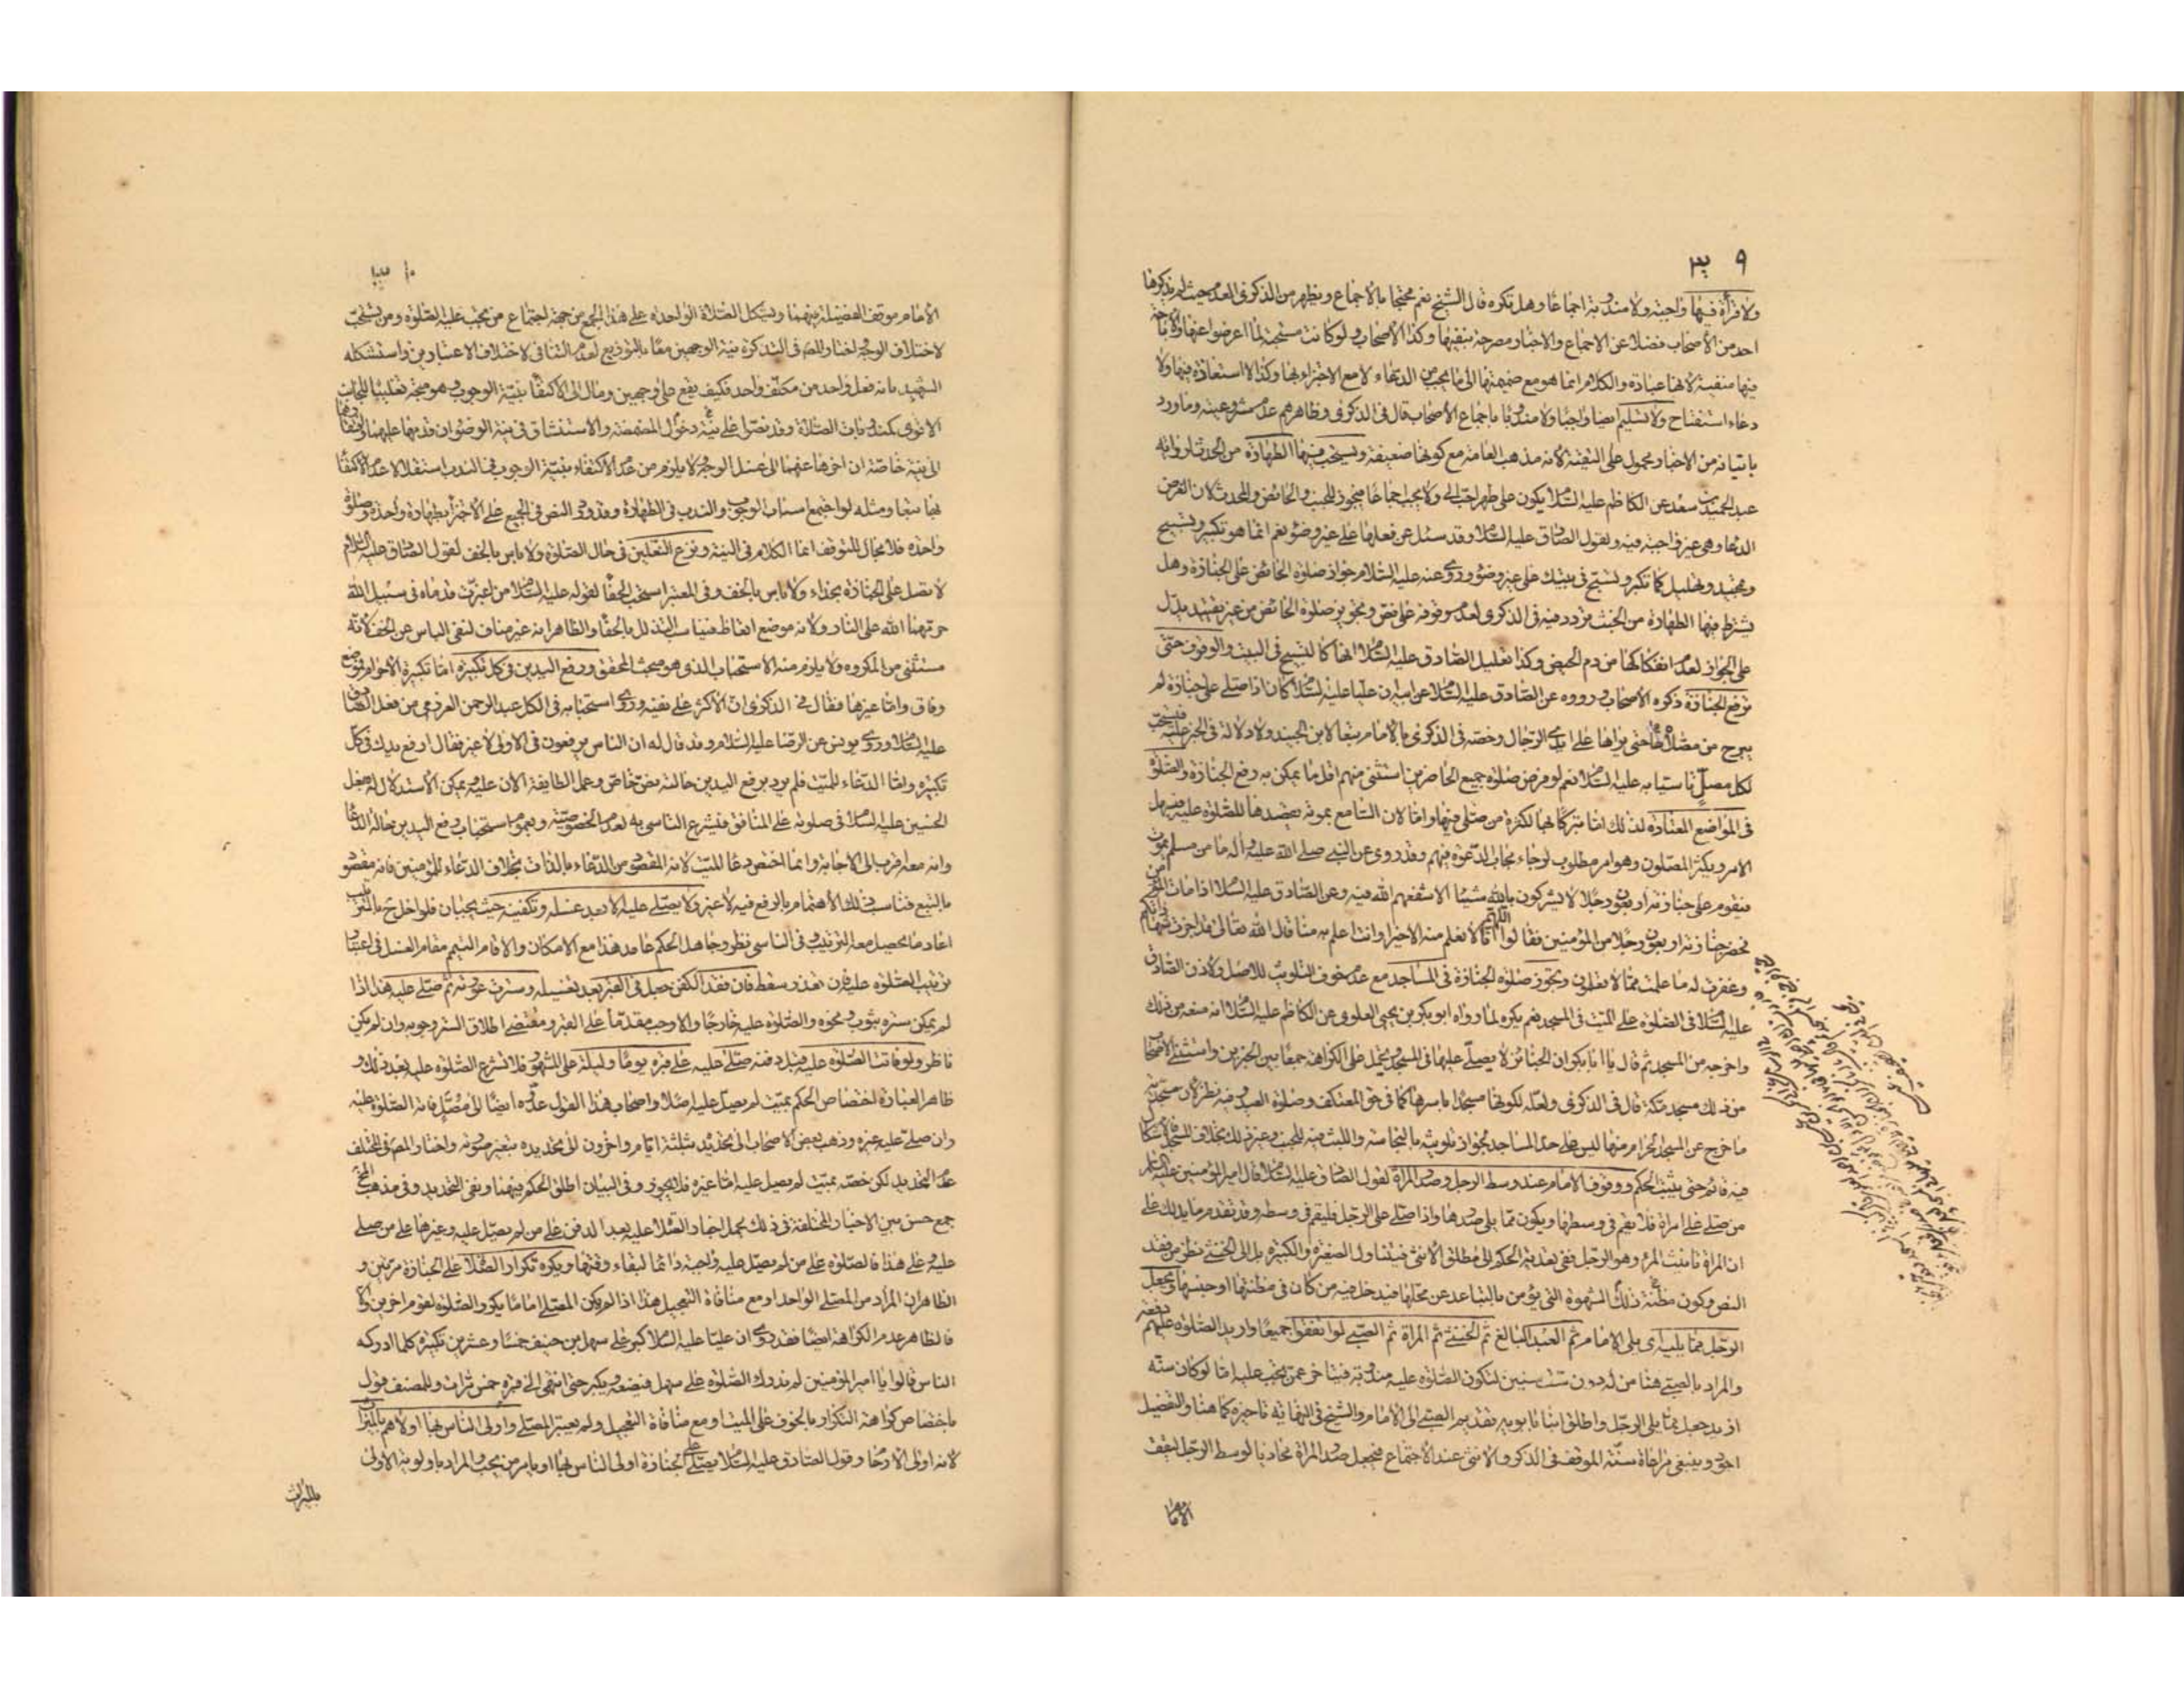 ٣٠٩
ولا قرأة فيها واجبة ولا مندوبة اجماعا وهل تكره قال الشيخ نعم محتجا بالاجماع ويظهر من الذكرى العدم حيث لم يذكرها
احد من الأصحاب فضلا عن الاجماع والاخبار مصرحة بنفيها وكذا الأصحاب ولو كانت مستحبة لما اعرضوا عنها والاباحة
فيها منفية لانها عبادة والكلام انما هو مع ضميمتها الى ما يجب من الدعاء لا مع الاجتزاء بها وكذا لا استعاذة فيها ولا
دعاء استفتاح ولا تسليم ايضا واجبا ولا مندوبا باجماع الأصحاب قال في الذكرى وظاهرهم عدم مشروعيته وما ورد
باتيانه من الاخبار محمول على التقية لأنه مذهب العامة مع كونها ضعيفة ويستحب فيها الطهارة من الحدث لرواية
عبد الحميد بن سعد عن الكاظم عليه السلام يكون على طهر احب الي ولا يجب اجماعا فيجوز للجنب والحائض والمحدث لان الغرض
الدعا وهي غير واجبة فيه ولقول الصادق عليه السلام وقد سئل عن فعلها على غير وضوء نعم انما هو تكبير وتسبيح
وتحميد وتهليل كما تكبر وتسبح في بيتك على غير وضوء وروى عنه عليه السلام جواز صلوة الحائض على الجنازة وهل
يشترط فيها الطهارة من الخبث تردد فيه في الذكرى لعدم وقوفه على نص وتجويز صلوة الحائض من غير تقييد يدل
على الجواز لعدم انفكاكها من دم الحيض وكذا تعليل الصادق عليه السلام انها كالتسبيح في البيت والوقوف حتى
ترفع الجنازة ذكره الأصحاب ورووه عن الصادق عليه السلام عن ابيه ان عليا عليه السلام كان اذا صلى على جنازة لم
يبرح من مصلاه حتى يراها على ايدي الرجال وخصه في الذكرى بالامام تبعا لابن الجنيد ولا دلالة في الخبر عليه فيستحب
لكل مصل تاسيا به عليه السلام نعم لو فرض صلوة جميع الحاضرين استثنى منهم اقل ما يمكن به رفع الجنازة والصلوة
في المواضع المعتادة لذلك اما تبركا بها لكثرة من صلى فيها واما لان السامع بموته يقصدها للصلوة عليه فيسهل
الامر ويكثر المصلون وهو امر مطلوب لرجاء مجاب الدعوة فيهم وقد روى عن النبي صلى الله عليه وآله ما من مسلم يموت
فيقوم على جنازته اربعون رجلا لا يشركون بالله شيئا الا شفعهم الله فيه وعن الصادق عليه السلام اذا مات المؤمن
فحضر جنازته اربعون رجلا من المؤمنين فقالوا اللهم انا لا نعلم منه الا خيرا وانت اعلم به منا قال الله تعالى قد اجزت شهادتكم
وغفرت له ما علمت مما لا تعلمون ويجوز صلوة الجنازة في المساجد مع عدم خوف التلويث للاصل ولاذن الصادق
عليه السلام في الصلوة على الميت في المسجد نعم يكره لما رواه ابو بكر بن يحيى العلوي عن الكاظم عليه السلام انه منعه من ذلك
واخرجه من المسجد ثم قال يا ابا بكر ان الجنائز لا يصلى عليها في المسجد ويحمل على الكراهة جمعا بين الخبرين واستثنى الأصحاب
من ذلك مسجد مكة قال في الذكرى ولعله لكونها مسجدا باسرها كما في حق المعتكف وصلوة العيد وفيه نظر لان مسجدية
ما خرج عن المسجد الحرام منها ليس على حد المساجد لجواز تلويثه بالنجاسة واللبث فيه للجنب وغير ذلك بخلاف المسجد
فيه فانه حتى يثبت الحكم ووقوف الامام عند وسط الرجل وصدر المرأة لقول الصادق عليه السلام قال امير المؤمنين عليه السلام
من صلى على امرأة فلا يقم في وسطها ويكون مما يلي صدرها واذا صلى على الرجل فليقم في وسطه وقد تقدم ما يدلك على
ان المرأة تانيث المرء وهو الرجل ففي تعدية الحكم الى مطلق الانثى فيتناول الصغيرة والكبيرة بل الى الخنثى نظر من فقد
النص وكون مظنة ذلك الشهوة التي يؤمن بالتباعد عن محلها فيدخل فيه من كان في مظنتها او جنسها ويجعل
الرجل مما يليه اي يلي الامام ثم العبد البالغ ثم الخنثى ثم المرأة ثم الصبي لو اتفقوا جميعا واريد الصلوة عليهم دفعة
والمراد بالصبي هنا من له دون ست سنين لتكون الصلوة عليه مندوبة فيتأخر عمن يجب عليه اما لو كان سته
ازيد جعل مما يلي الرجل واطلق ابنا بابويه تقديم الصبي الى الامام والشيخ في النهاية تاخيره كما هنا والتفصيل
اجود وينبغي مراعاة سنة الموقف في الذكر والانثى عند الاجتماع فيجعل صدر المرأة محاذيا لوسط الرجل ليقف
الامام
٣١٠
الامام موقف الفضيلة فيهما ويشكل الصلاة الواحدة على هذا الجمع من جهة اجتماع من يجب عليه الصلوة ومن يستحب
لاختلاف الوجه اختار المص في التذكرة نية الوجهين معا بالتوزيع لعدم التنافي لاختلاف الاعتبارين واستشكله
الشهيد بانه فعل واحد من مكلف واحد فكيف يقع على وجهين ومال الى الاكتفاء بنية الوجوب وهو متجه تغليبا للجانب
الاقوى كمندوبات الصلاة وقد نصوا على نية دخول المضمضة والاستنشاق في نية الوضوء ان قدمها عليهما وافتقارهما
الى نية خاصة ان اخرها عنهما الى غسل الوجه ولا يلزم من عدم الاكتفاء بنية الوجوب في الندب استقلالا عدم الاكتفاء
بها تبعا ومثله لو اجتمع اسباب الوجوب والندب في الطهارة وقد ورد النص في الجميع على الاجتزاء بطهارة واحدة وصلوة
واحدة فلا مجال للتوقف انما الكلام في النية ونزع النعلين في حال الصلوة ولا باس بالخف لقول الصادق عليه السلام
لا يصلى على الجنازة بحذاء ولا باس بالخف وفي المعتبر استحب الحفاء لقوله عليه السلام من اغبرت قدماه في سبيل الله
حرمهما الله على النار ولانه موضع اتعاظ فيناسب التذلل بالحفاء والظاهر انه غير مناف لنفي الباس عن الخف لانه
مستثنى من المكروه ولا يلزم منه الاستحباب الذي هو مبحث المحقق ورفع اليدين في كل تكبيرة اما تكبيرة الاحرام فموضع
وفاق واما غيرها فقال في الذكرى ان الأكثر على نفيه وروى استحبابه في الكل عبد الرحمن العرزمي من فعل الصادق
عليه السلام وروى يونس عن الرضا عليه السلام وقد قال له ان الناس يرفعون في الاولى لا غير فقال ارفع يديك في كل
تكبيرة واما الدعاء للميت فلم يرد برفع اليدين حالته نص خاص وعمل الطايفة الان عليه ويمكن الاستدلال له بفعل
الحسين عليه السلام في صلوته على المنافق فيشرع التاسي به لعدم الخصوصية وبعموم استحباب رفع اليدين حالة الدعاء
وانه معه اقرب الى الاجابة وانما اختص دعاء للميت لانه المقصود من الدعاء بالذات بخلاف الدعاء للمؤمنين فانه مقصود
بالتبع فناسب ذلك الاهتمام بالرفع فيه لا غير ولا يصلى عليه الا بعد غسله وتكفينه حيث يجبان فلو اخل ح بالترتيب
اعاد ما يحصل معه الترتيب وفي الناسي نظر وجاهل الحكم عامد هذا مع الامكان والا قام التيمم مقام الغسل في اعتبار
ترتيب الصلوة عليه فان تعذر سقط فان فقد الكفن جعل في القبر بعد تغسيله وسترت عورته ثم صلى عليه هذا اذا
لم يمكن ستره بثوب ونحوه والصلوة عليه خارجا والا وجب مقدما على القبر ومقتضى اطلاق الستر وجوبه وان لم يكن
ناظر ولو فاتت الصلوة عليه قبل دفنه صلى عليه على قبره يوما وليلة على المشهور فلا تشرع الصلوة عليه بعد ذلك و
ظاهر العبارة اختصاص الحكم بميت لم يصل عليه اصلا واصحاب هذا القول عدوه ايضا الى مصل فاتته الصلوة عليه
وان صلى عليه غيره وذهب بعض الاصحاب الى تحديده بثلثة ايام واخرون الى تحديده بتغير صورته واختار المص في المختلف
عدم التحديد لكن خصه بميت لم يصل عليه اما غيره فلا يجوز وفي البيان اطلق الحكم فيهما ونفى التحديد وفي مذهب المختلف
جمع حسن بين الاخبار المختلفة في ذلك بحمل اخبار الصلاة عليه بعد الدفن على من لم يصل عليه وغيرها على من صلى
عليه وعلى هذا فالصلوة على من لم يصل عليه واجبة دائما لبقاء وقتها ويكره تكرار الصلاة على الجنازة مرتين و
الظاهر ان المراد من المصلى الواحد او مع منافاة التعجيل هذا اذا لم يكن المصلى اماما يكرر الصلوة لقوم اخرين والا
فالظاهر عدم الكراهة ايضا فقد روى ان عليا عليه السلام كبر على سهل بن حنيف خمسا وعشرين تكبيرة كلما ادركه
الناس قالوا يا امير المؤمنين لم ندرك الصلوة على سهل فيضعه ويكبر حتى انتهى الى قبره خمس مرات وللمصنف قول
باختصاص كراهة التكرار بالخوف على الميت او مع منافاة التعجيل ولم يعتبر المصلى واولى الناس بها اولاهم بالميراث
لانه اولى الارحام وقول الصادق عليه السلام يصلى على الجنازة اولى الناس بها او يامر من يحب والمراد باولوية الاولى
بالميراث